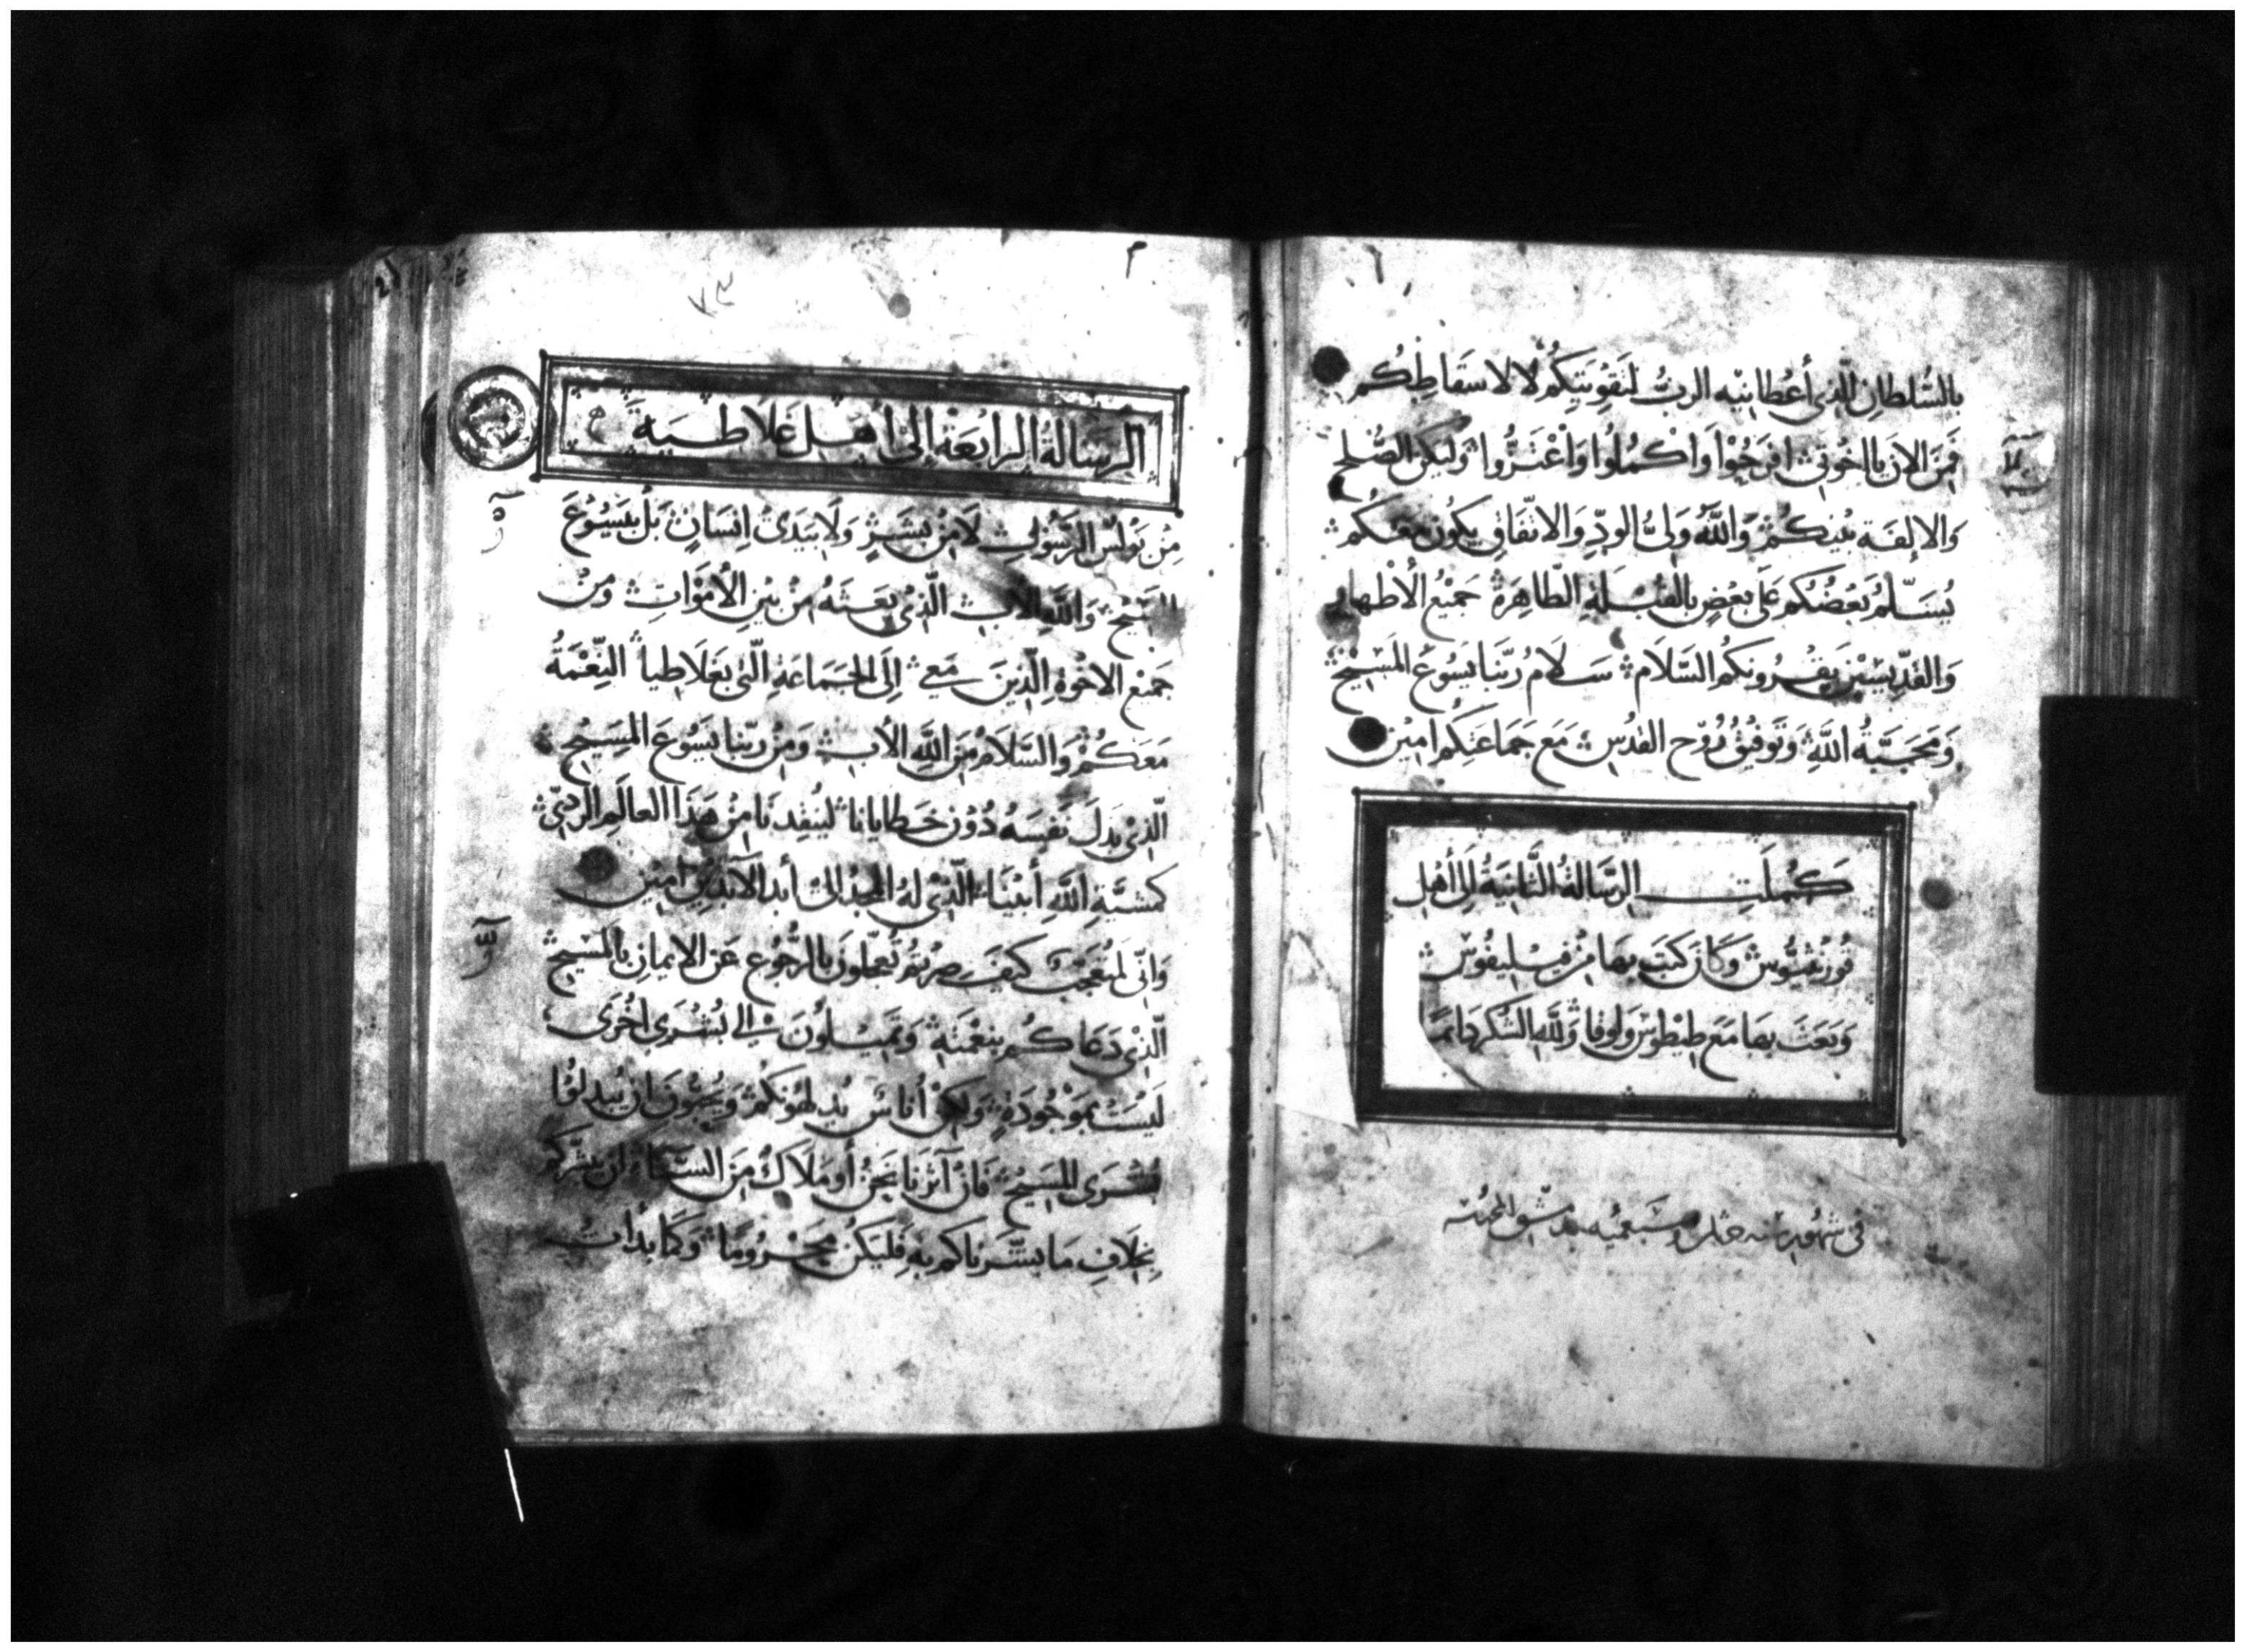 بِالسُّلطانِ الَّذِي أَعْطانِيْهِ الربُّ لتَقِوْيَتِكُمْ لا لاسقَاطِكُم
فَمِنَ الانَ يا اخوَتِي افرَحُوْا وَاكْمُلُوا وَاعْتَزُّوا وَليَكنِ الصُّلح
وَالالِفَة بيْنكُمْ وَاللَّهُ وَلِيُّ الودِّ وَالاتّفَاقِ يكُون معَكُم
يُسَلّمُ بَعْضُكُم عَلَى بَعْضٍ بالقُبْلَةِ الطّاهِرَةِ جَمِيْعُ الأطْهار
وَالقدِّيسِيْن يَقْرُونكُم السَّلَام سَلَامُ ربّنَا يَسُوع المَسِيْح
وَمَحَبَّةُ اللَّهِ وَتَوفِيْقُ رُوْح القدُسِ مَعَ جَمَاعَتِكُم امِيْن
كَمُلَتِ الرّسَالةُ الثَّانِيَةُ إلَى أَهْلِ
قُورُنثيُوسَ وَكَانَ كتَبَ بِهَا مِنْ فيلِيفُوس
وَبَعَثَ بهَا مَعَ طِيْطوُس وَلوقا وَللَّهِ الشكر دَايمًا
الرِّسَالةُ الرابعَة إلىْ أهْلِ غَلَاطِيَة
مِنْ بَوْلُسَ الرَّسُولِ لَا مِنْ بشَرٍ وَلَا بيَدَىْ انسَانٍ بَلْ بيَسُوْعَ
المَسِيْح وَاللَّهِ الاب الّذِيْ بعَثهُ مِنْ بَيْنِ الأمْوَاتِ وَمِنْ
جَمِيْع الاخْوَةِ الّذِينَ مَعِي إلَى الجَمَاعَةِ الّتِي بغَلَاطِيا النِّعْمَةُ
مَعَكُمْ وَالسَّلَامُ مِنَ اللَّهِ الأب وَمِنْ ربّنا يَسُوعَ المَسِيْح
الّذِيْ بَذلَ نَفسَهُ دُوْن خَطايانا ليُنقِذنَا مِنْ هَذَا العَالَمِ الردِيّ
كمَشيَّةِ اللَّهِ أبيْنَا الّذِيْ لهُ المجْدُ إلىْ أبدِ الآبدِيْن امِيْن
وَانّي لمتعَجِّبٌ كيْفَ صِرتُم تُعَجّلونَ بالرُّجُوْع عَنِ الايمانِ بالمَسِيْح
الّذِيْ دَعَاكُم بنِعْمَتِهِ وَتَمِيْلُونَ الى بُشْرَى اخْرَى
لَيْسَتْ بمَوْجُودَةٍ وَلكِنْ أُناسٌ يُدلهونكُمْ وَيُحِبُّونَ ان يُبدلوْا
بُشْرَى المَسِيْح فَانْ آثرْنَا نَحْنُ أو مَلَاكٌ مِنَ السَّمَاء ان نبشّركُم
بخِلَافِ مَا بشَّرْناكُم بهِ فَليَكُنْ مَحْرُوْمًا وَكَمَا بدَأت